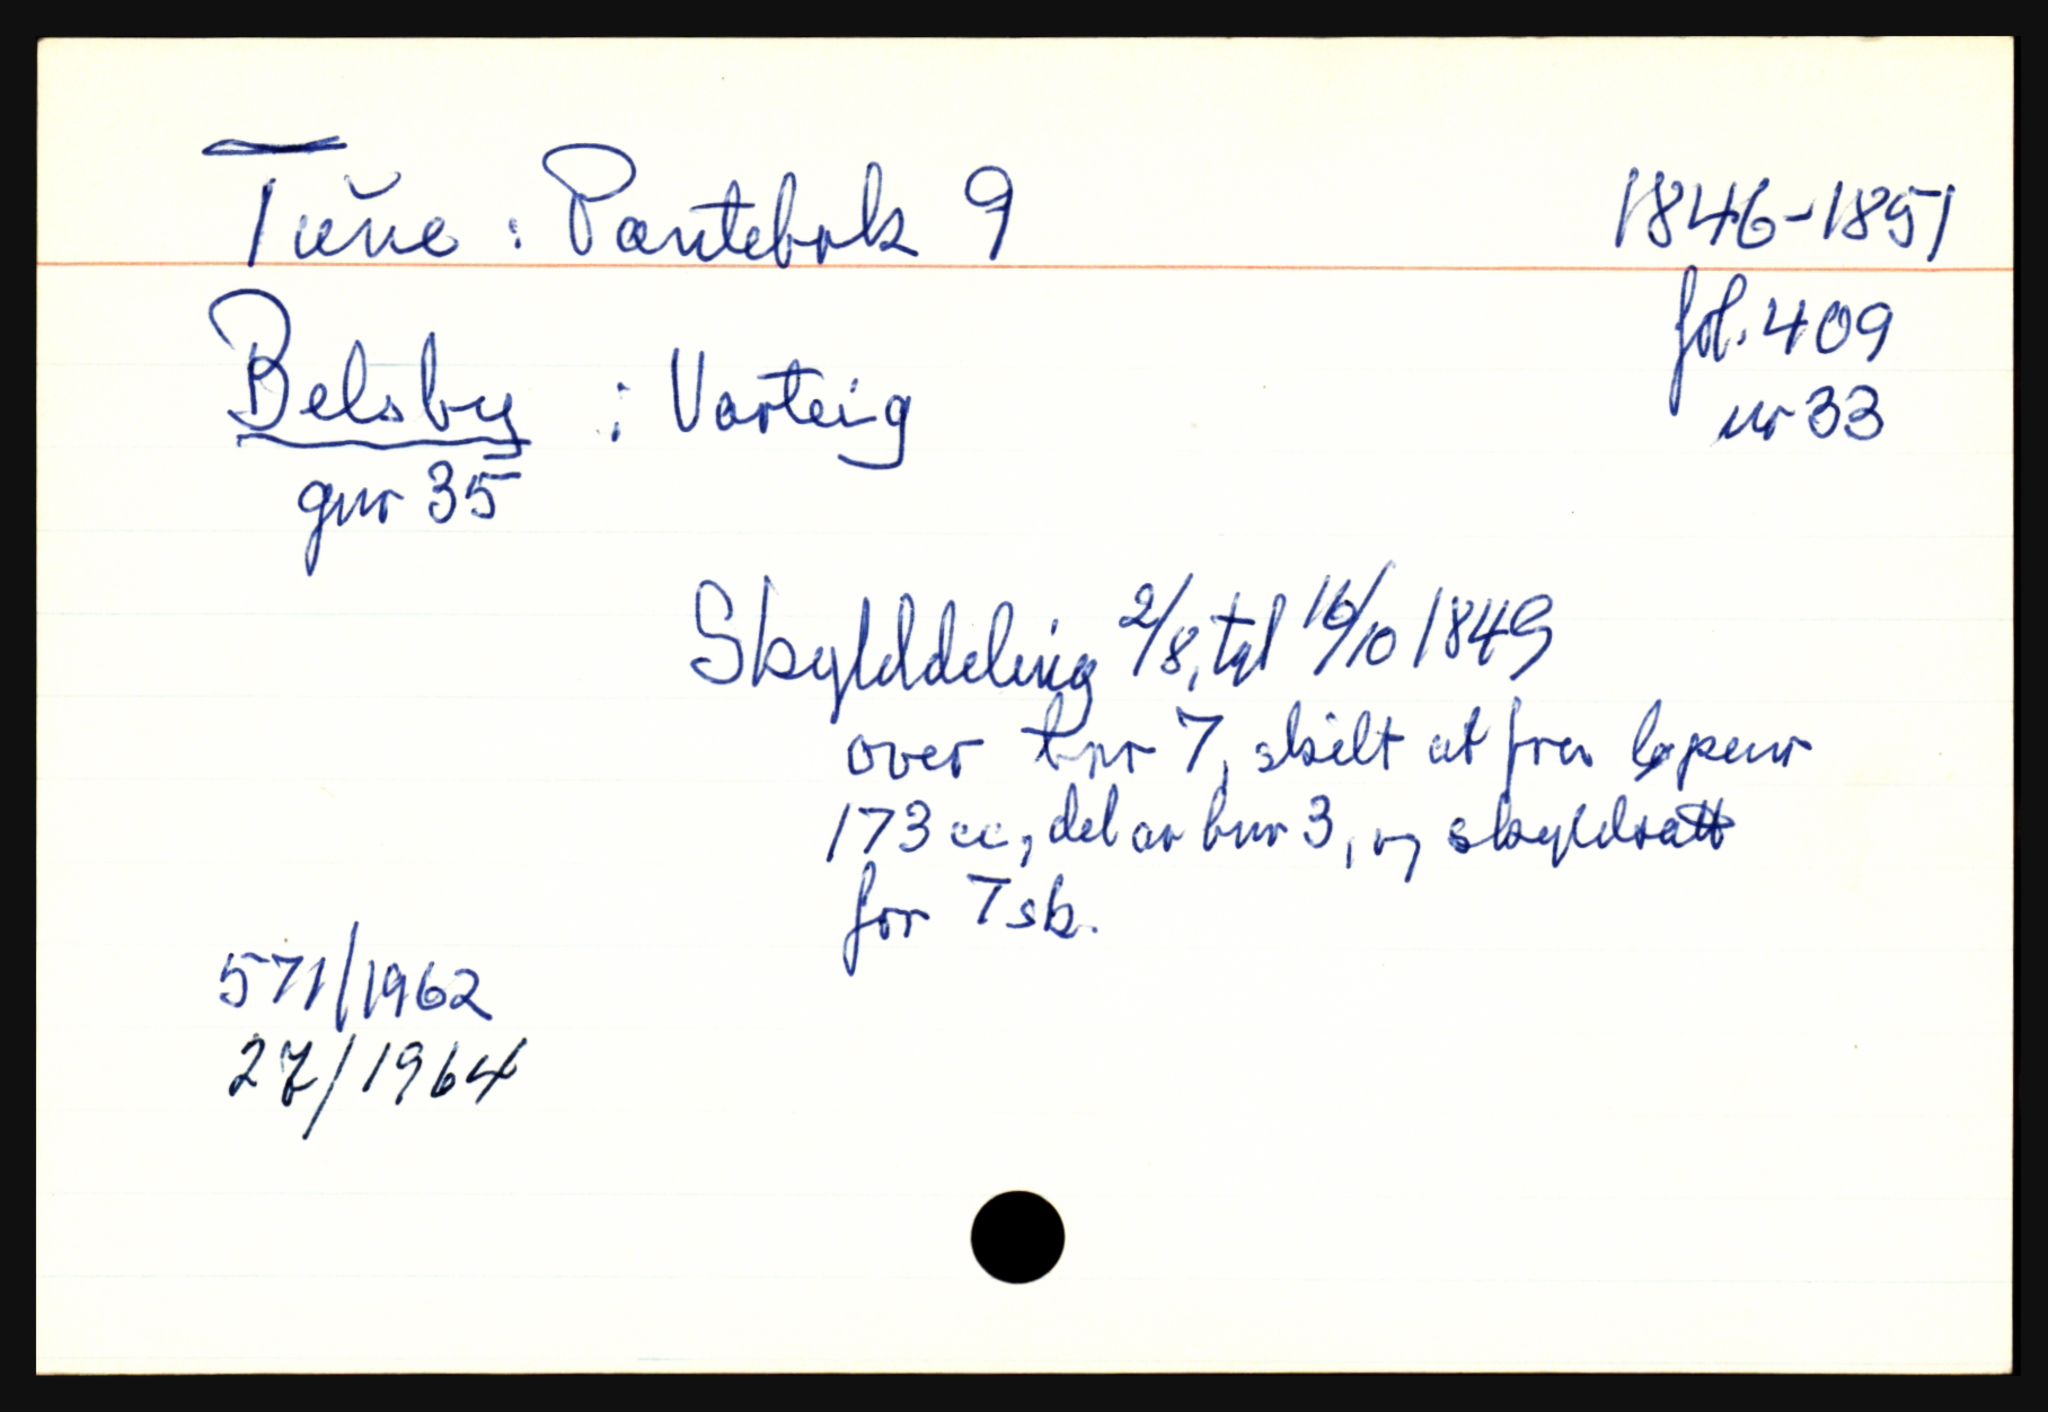 Tune : Pantebok 9 1846-1851
fol. 409
Belsby : Varteig nr 33
gnr 35
Skylddeling 2/8, tgl 16/10 1849
over bnr 7, skilt ut fra løpenr
173 cc, del av bnr 3, og skyldsatt
for 7 sk.
571/1962
27/1964